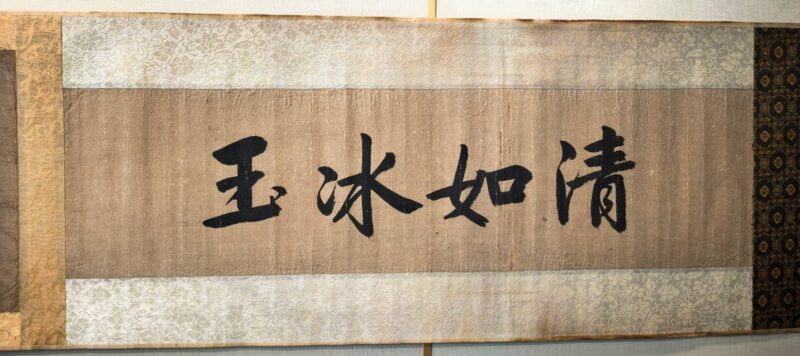 清如冰玉